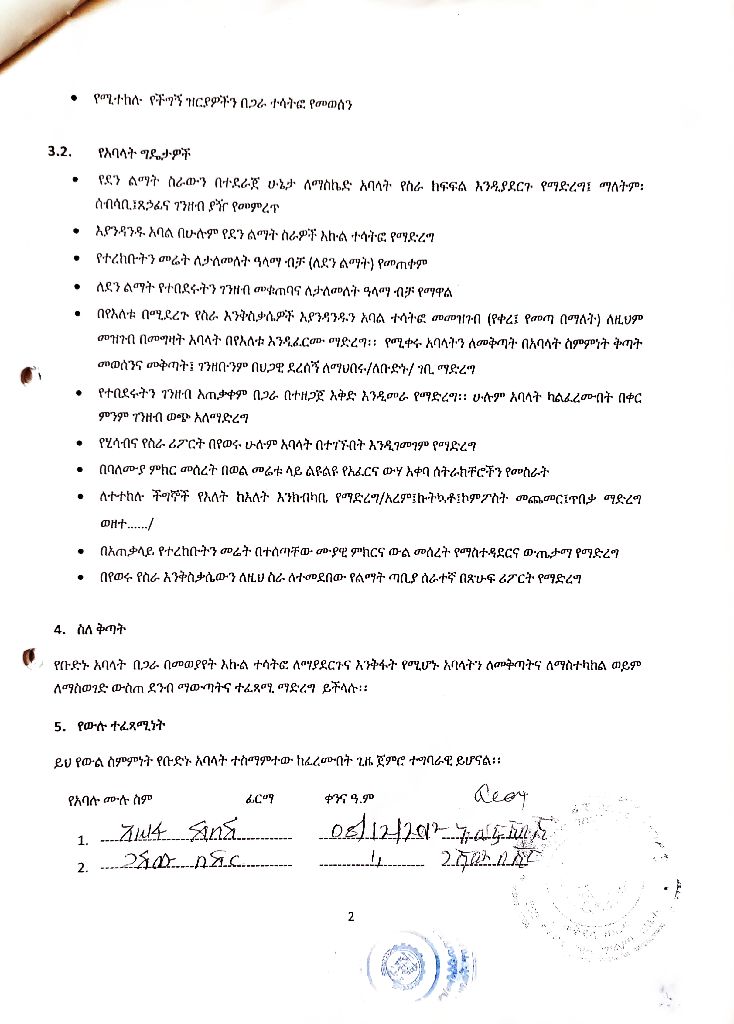 • የሚተከሉ የችግኝ ዝርያዎችን በጋራ ተሳትፎ የመወሰን
3.2. የአባላት ግዴታዎች
• የደን ልማት ስራውን በተደራጀ ሁኔታ ለማስኬድ አባላት የስራ ክፍፍል እንዲያደርጉ የማድረግ፤ ማለትም፡
ሰብሳቢ፤ጸኃፊና ገንዘብ ያዥ የመምረጥ
• እያንዳንዱ አባል በሁሉም የደን ልማት ስራዎች እኩል ተሳትፎ የማድረግ
• የተረከቡትን መሬት ለታለመለት ዓላማ ብቻ (ለደን ልማት) የመጠቀም
• ለደን ልማት የተበደሩትን ገንዘብ መቁጠባና ለታለመለት ዓላማ ብቻ የማዋል
• በየእለቱ በሚደረጉ የስራ እንቅስቃሴዎች እያንዳንዱን አባል ተሳትፎ መመዝገብ (የቀረ፤ የመጣ በማለት) ለዚህም
መዝገብ በመግዛት አባላት በየእለቱ እንዲፈርሙ ማድረግ፡፡ የሚቀሩ አባላትን ለመቅጣት በአባላት ስምምነት ቅጣት
መወሰንና መቅጣት፤ ገንዘቡንም በህጋዊ ደረሰኝ ለማህበሩ/ለቡድኑ/ ገቢ ማድረግ
• የተበደሩትን ገንዘብ አጠቃቀም በጋራ በተዘጋጀ እቅድ እንዲመራ የማድረግ፡፡ ሁሉም አባላት ካልፈረሙበት በቀር
ምንም ገንዘብ ወጭ አለማድረግ
• የሂሳብና የስራ ሪፖርት በየወሩ ሁሉም አባላት በተገኙበት እንዲገመገም የማድረግ
• በባለሙያ ምክር መሰረት በወል መሬቱ ላይ ልዩልዩ የአፈርና ውሃ እቀባ ስትራክቸሮችን የመስራት
• ለተተከሉ ችግኞች የእለት ከእለት እንክብካቤ የማድረግ/አረም፤ኩትኳቶ፤ኮምፖስት መጨመር፤ጥበቃ ማድረግ
ወዘተ....../
• በአጠቃላይ የተረከቡትን መሬት በተሰጣቸው ሙያዊ ምክርና ውል መሰረት የማስተዳደርና ውጤታማ የማድረግ
• በየወሩ የስራ እንቅስቃሴውን ለዚህ ስራ ለተመደበው የልማት ጣቢያ ሰራተኛ በጽሁፍ ሪፖርት የማድረግ
4. ስለ ቅጣት
የቡድኑ አባላት በጋራ በመወያየት እኩል ተሳትፎ ለማያደርጉና እንቅፋት የሚሆኑ አባላትን ለመቅጣትና ለማስተካከል ወይም
ለማስወገድ ውስጠ ደንብ ማውጣትና ተፈጻሚ ማድረግ ይችላሉ፡፡
5. የውሉ ተፈጻሚነት
ይህ የውል ስምምነት የቡድኑ አባላት ተስማምተው ከፈረሙበት ጊዜ ጀምሮ ተግባራዊ ይሆናል፡፡
የአባሉ ሙሉ ስም ፊርማ ቀንና ዓ.ም
1. 08/12/2012
2.
2